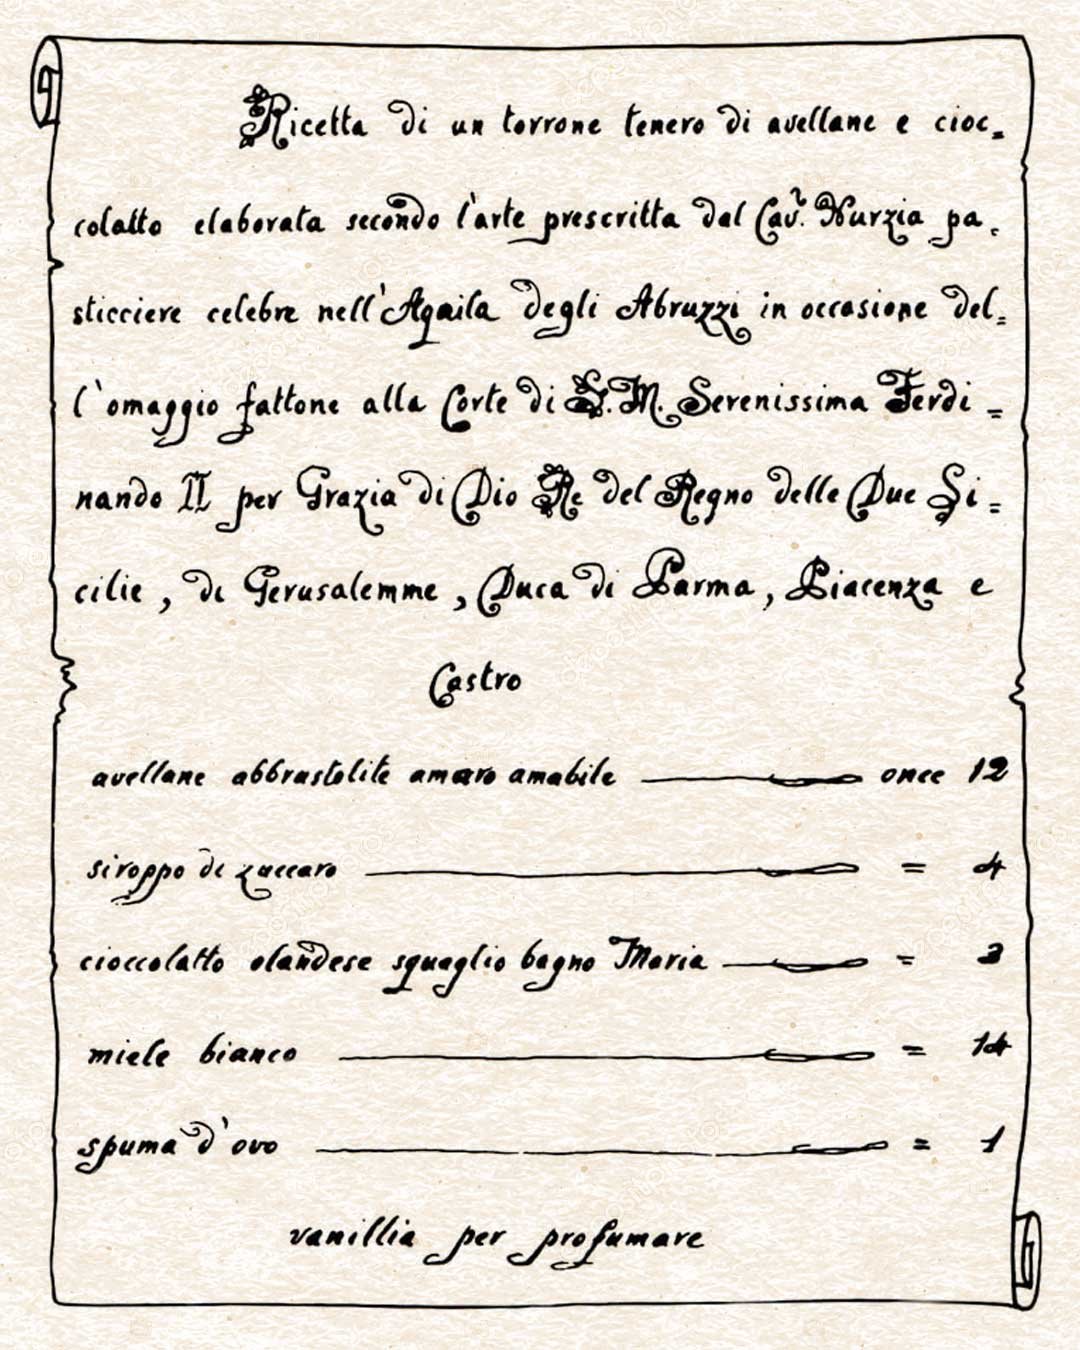 Ricetta di un torrone tenero di avellane e cioc=
colatto elaborata secondo l'arte prescritta dal Cav.r Nurzia pa=
sticciere celebre nell'Aquila degli Abruzzi in occasione del=
l'omaggio fattone alla Corte di S.M. Serenissima Ferdi=
nando II per Grazia di Dio Re del Regno delle Due Si=
cilie, di Gerusalemme, Duca di Parma, Piacenza e
Castro
avellane abbrustolite amaro amabile once 12
siroppo di zuccaro = 4
cioccolatto olandese squaglio bagno Maria = 3
miele bianco = 14
spuma d'ovo = 1
vanillia per profumare